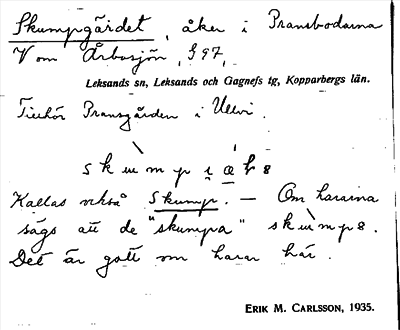 Skumpgärdet, åker i Pransbodarna
V om Årbosjön, § 97,
Leksands sn, Leksands och Gagnefs tg, Kopparbergs län.
Tillhör Pransgården i Ullvi.
Kallas också Skump. — Om hararna
sägs att de "skumpa"
Det är gott om harar här.
ERIK M. CARLSSON, 1935.